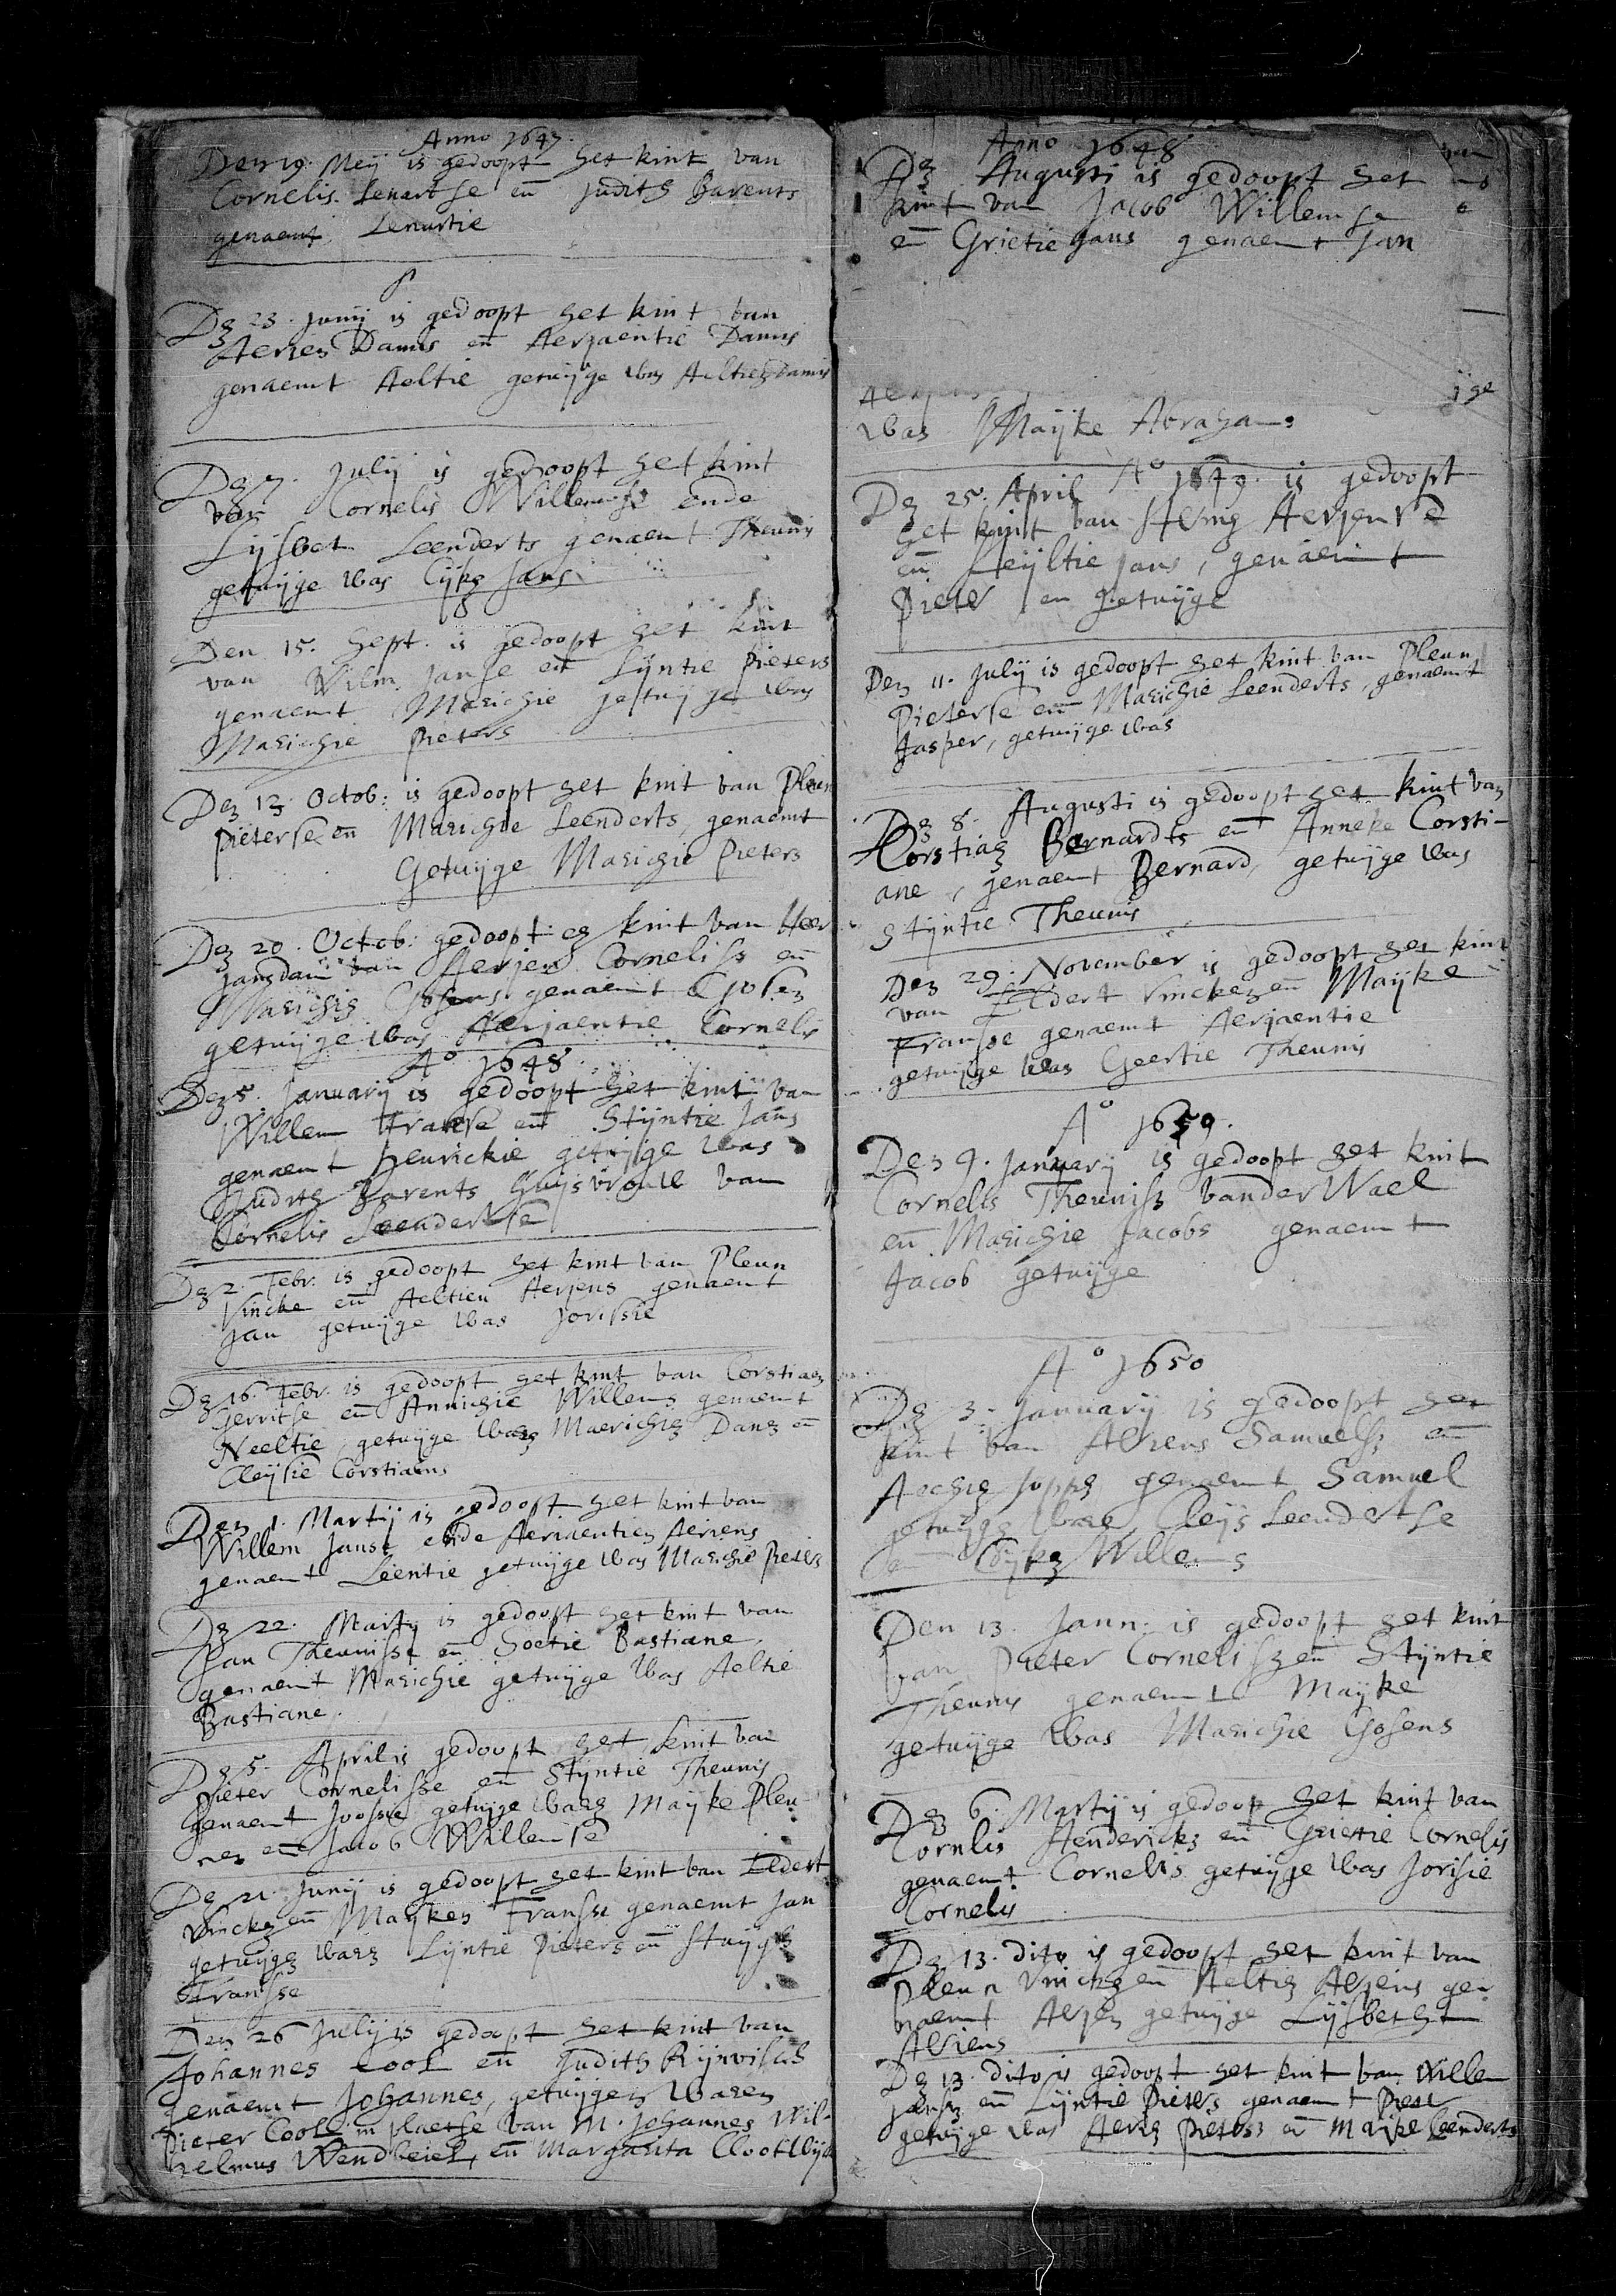 Anno 1647.
Den 19. Meij is gedoopt het kint van
Cornelis Lenartse en Judith Barents
genaemt Lenartie
Den 23. Junij is gedoopt het kint van
Aerien Danis en Aerjaentie Danis
genaemt Aeltie getuijge was Aeltien Danis
Den 7. Julij is gedoopt het kint
van Cornelis Willemse ende
Lijsbet Leenderts genaemt Theunis
getuijge was Cijke Jans
Den 15. Sept. is gedoopt het kint
van Wilm Janse en Lijntie Pieters
genaemt Marichie getuijge was
Marichie Pieters
Den 13. Octob: is gedoopt het kint van Pleun
Pieterse en Marichie Leenderts, genaemt
Getuijge Marichie Pieters
Den 20. Octob: gedoopt en kint van Heer
Jansdam van Aerjen Corneliss en
Marichie Gosens genaemt Gosen
getuijge was Aerjaentie Cornelis
Ao 1648.
Den 5. Januarij is gedoopt het kint van
Willem Franse en Stijntie Jans
genaemt Henrickie getuijge was
Judith Barents huijsvrouw van
Cornelis Leendertse
Den 2. Febr. is gedoopt het kint van Pleun
Vincke en Aeltien Aerjens genaemt
Jan getuijge was Jorissie
Den 16. Febr. is gedoopt het kint van Corstiaen
Gerritse en Annichie Willems genaemt
Neeltie, getuijge waer Maerichie Dane en
Cleijsie Corstiaens
Den 1. Martij is gedoopt het kint van
Willem Janse ende Aeriaentien Aeriens
genaemt Leentie getuijge was Marichie Pieters
Den 22. Martij is gedoopt het kint van
Jan Theunisse en Soetie Bastiane
genaemt Marichie getuijge was Aeltie
Bastiane.
Den 5. April is gedoopt het kint van
Pieter Cornelisse en Stijntie Theunis
genaemt Joosie getuijge ware Maijke Pleu-
nen en Jacob Willemse
Den 21. Junij is gedoopt het kint van Eldert
Vincke en Maijken Franse genaemt Jan
getuijge ware Lijntie Pieters en
Franse
Den 26 Julij is gedoopt het kint van
Johannes Cool en Judith Rijnvisch
genaemt Johannes, getuijgen waren
Pieter Cool in plaetse van M. Johannes Wil-
helmus en Margarita Clootwijck
Anno 1648
Den Augusti is gedoopt het
kint van Jacob Willemse
en Grietie Jans genaemt Jan
was Maijke Abrahams
Ao 1649. is gedoopt
Den 25. April
het kint van Aerjense
en Neijltie Jans, genaemt
Pieter en getuijge
Den 11. Julij is gedoopt het kint van Pleun
Pieterse en Marichie Leenderts, genaemt
Jasper, getuijge was
Den 8. Augusti is gedoopt het kint van
Corstiaen Bernardts en Anneke Corsti-
ane, genaemt Bernard, getuijge was
Stijntie Theunis
Den 29. November is gedoopt het kint
van Eldert Vincken en Maijke
Franse genaemt Aerjaentie
getuijge was Geertie Theunis
Ao 1659.
Den 9. January is gedoopt het kint
Cornelis Theunisz vander Wael
en Marichie Jacobs genaemt
Jacob getuijge
Ao 1650
Den 3. Januarij is gedoopt het
kint van Ariens Samuelsz en
Aechie genaemt Samuel
getuijge ware Cleijs Leendertse
en Cijke Willems
Den 13. Jann. is gedoopt het kint
van Pieter Cornelisz en Stijntie
Theunis genaemt Maijke
getuijge was Marichie Gosens
Den 6. Martij is gedoop het kint van
Cornlis Hendericks en Grietie Cornelis
genaemt Cornelis getuijge was Jorisie
Cornelis
Den 13. dito is gedoopt het kint van
Pleun Vincke en Aeltie Arjens ge-
naemt Arjen getuijge Lijsbetht
Ariens
Den 13. dito is gedoopt het kint van Willem
Jansz en Lijntie Pieters genaemt
getuijge was Pieters en Maijke Leenderts